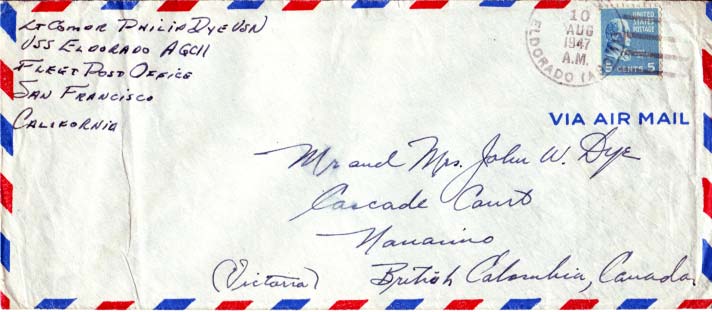 Lt Comdr Philip Dye USN
USS Eldorado AGC11
Fleet Post Office
San Francisco
California
10
AUG
1947
A.M.
ELDORADO (AGC11)
UNITED STATES
POSTAGE
5 CENTS 5
VIA AIR MAIL
Mr and Mrs. John W. Dye
Cascade Court
Nanaimo
(Victoria) British Colombia, Canada